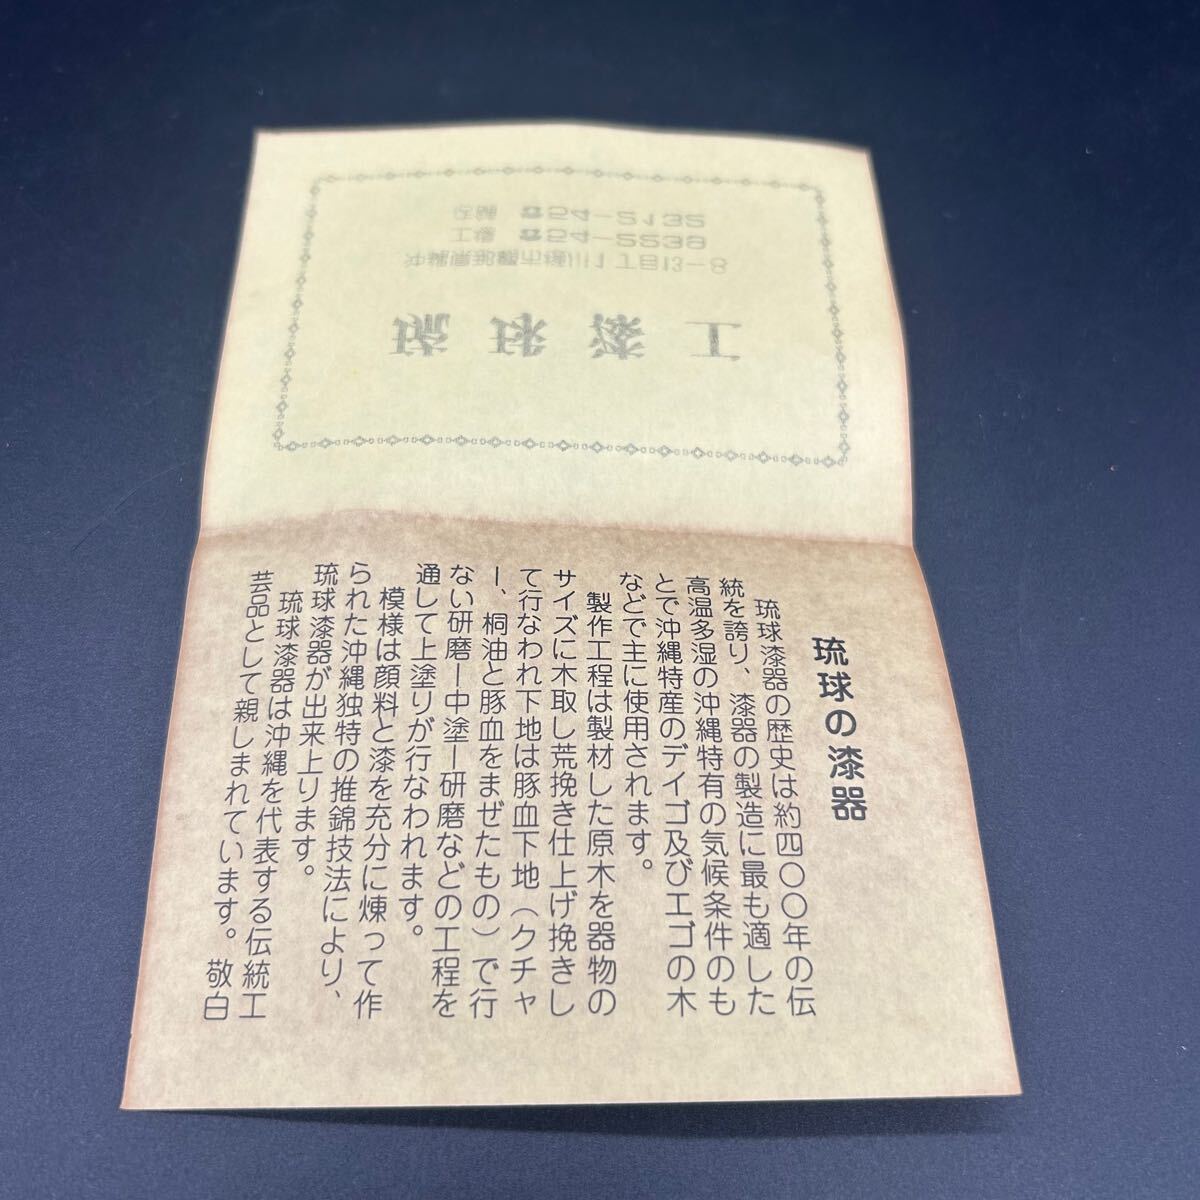 琉球の漆器
琉球漆器の歴史は約四〇〇年の伝
統を誇り、漆器の製造に最も適した
高温多湿の沖縄特有の気候条件のも
とで沖縄特産のデイゴ及びエゴの木
などで主に使用されます。
製作工程は製材した原木を器物の
サイズに木取し荒挽き仕上げ挽きし
て行なわれ下地は豚血下地（クチャ
ー、桐油と豚血をまぜたもの）で行
ない研磨ー中塗ー研磨などの工程を
通して上塗りが行なわれます。
模様は顔料と漆を充分に煉って作
られた沖縄独特の推錦技法により、
琉球漆器が出来上ります。
琉球漆器は沖縄を代表する伝統工
芸品として親しまれています。敬白
琉球漆工
沖縄県那覇市樋川1丁目13-8
工場 ☎54-5538
店舗 ☎54-5135